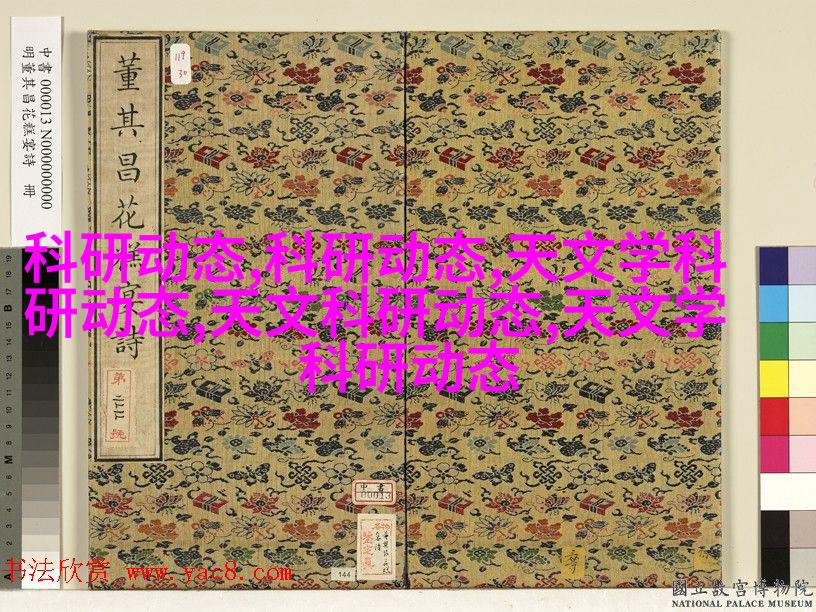 中書 000013 N000000000
明董其昌花糕宴詩 冊
董其昌花糕宴詩
119
30
科研动态,科研动态,天文学科
研动态,天文科研动态,天文学
科研动态
第
二二二
號
中書
00013
144
书法欣赏 www.yac8.com
國立故宮博物院
NATIONAL PALACE MUSEUM